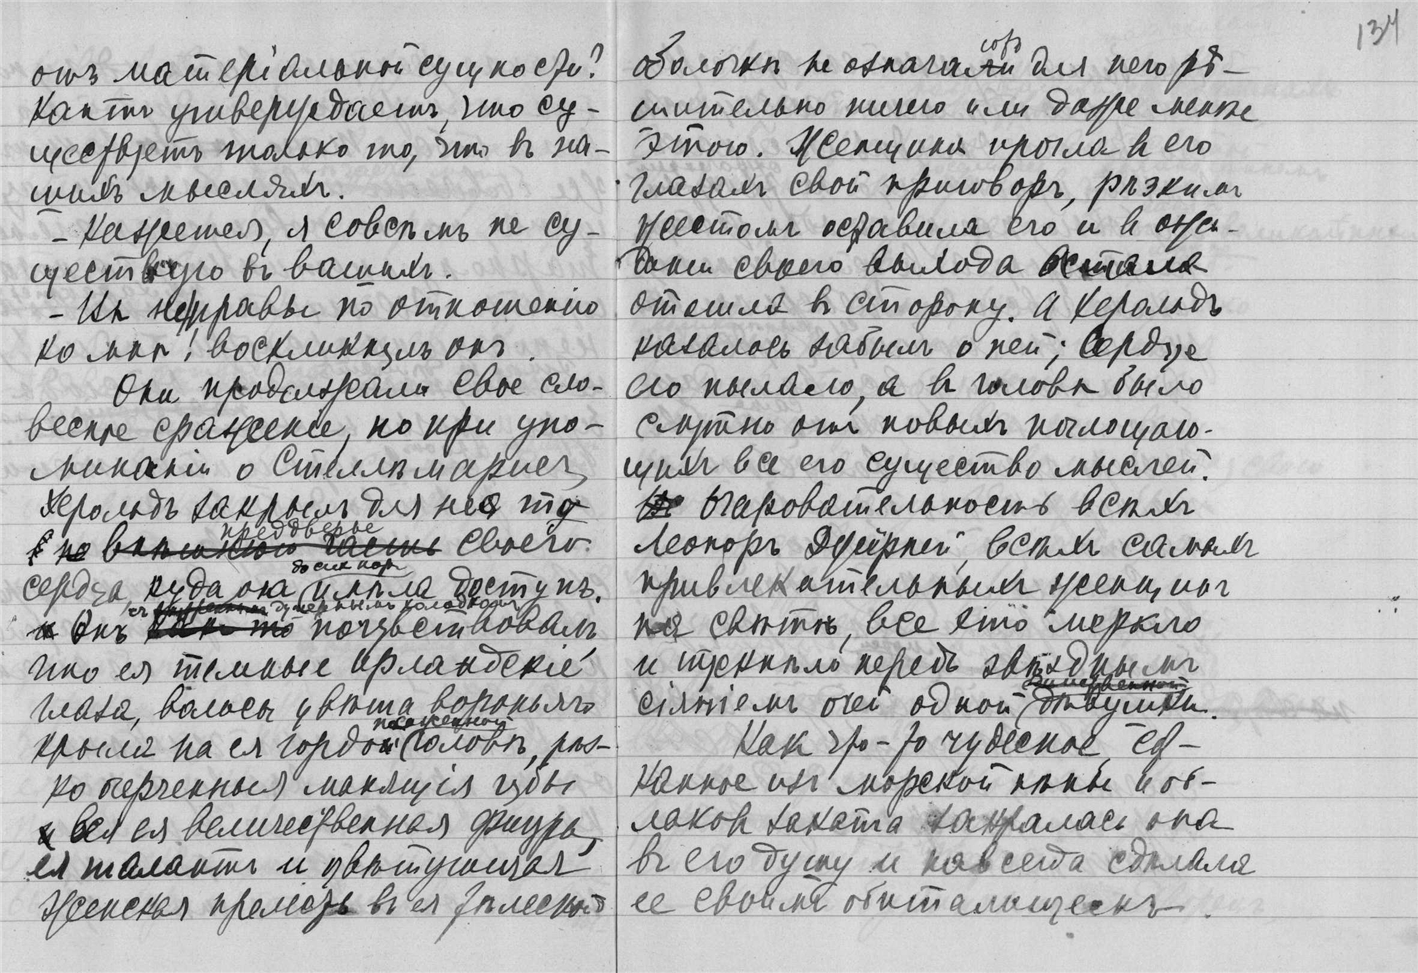 отъ матеріальной сущности?
Кантъ утверждаетъ, что су-
ществуетъ только то, что въ на-
шихъ мысляхъ.
- Кажется, я совсѣмъ не су-
ществую въ вашихъ.
- Вы неправы по отношенію
ко мнѣ! воскликнулъ онъ.
Они продолжали свое сло-
весное сраженіе, но при упо-
минаніи о Стеллѣ Марисъ
Херольдъ закрылъ для нея то
преддверье
своего
до сихъ поръ
сердца, куда она имѣла доступъ.
съ душевнымъ холодкомъ
Онъ почувствовалъ,
что ея темные ирландскіе
глаза, волосы цвѣта вороньяго
посаженной
крыла на ея гордой головѣ, рѣз-
ко очерченныя манящія губы
вся ея величественная фигура,
ея талантъ и цвѣтущая
женская прелесть въ ея тѣлесной
134
оболочкѣ не означали для него рѣ-
шительно ничего или даже менѣе
этого. Женщина прочла в его
глазахъ свой приговоръ, рѣзкимъ
жестомъ оставила его и в ожи-
даніи своего выхода
отошла въ сторону. А Херольдъ
казалось забылъ о ней; сердце
его пылало, а в головѣ было
смутно отъ новыхъ поглощаю-
щихъ все его существо мыслей.
Очаровательность всѣхъ
Леоноръ Эдуирней, всѣхъ самыхъ
привлекательныхъ женщинъ
на свѣтѣ, все это меркло
и тускнѣло передъ звѣзднымъ
сіяніемъ очей одной дѣвушки.
Какъ что-то чудесное, сот-
канное изъ морской пѣны и об-
лаковъ заката закралась она
въ его душу и навсегда сдѣлала
ее своимъ обиталищемъ.